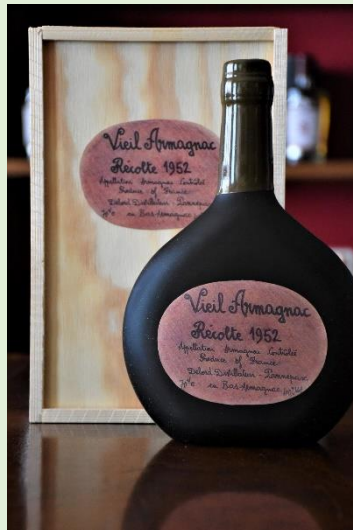 Vieil Armagnac
Récolte 1952
Appellation Armagnac Contrôlée
Produce of France
en Bas Armagnac
Vieil Armagnac
Récolte 1952
Appellation Armagnac Contrôlée
Produce of France
Délord Distillateur - Lannepax
en Bas Armagnac